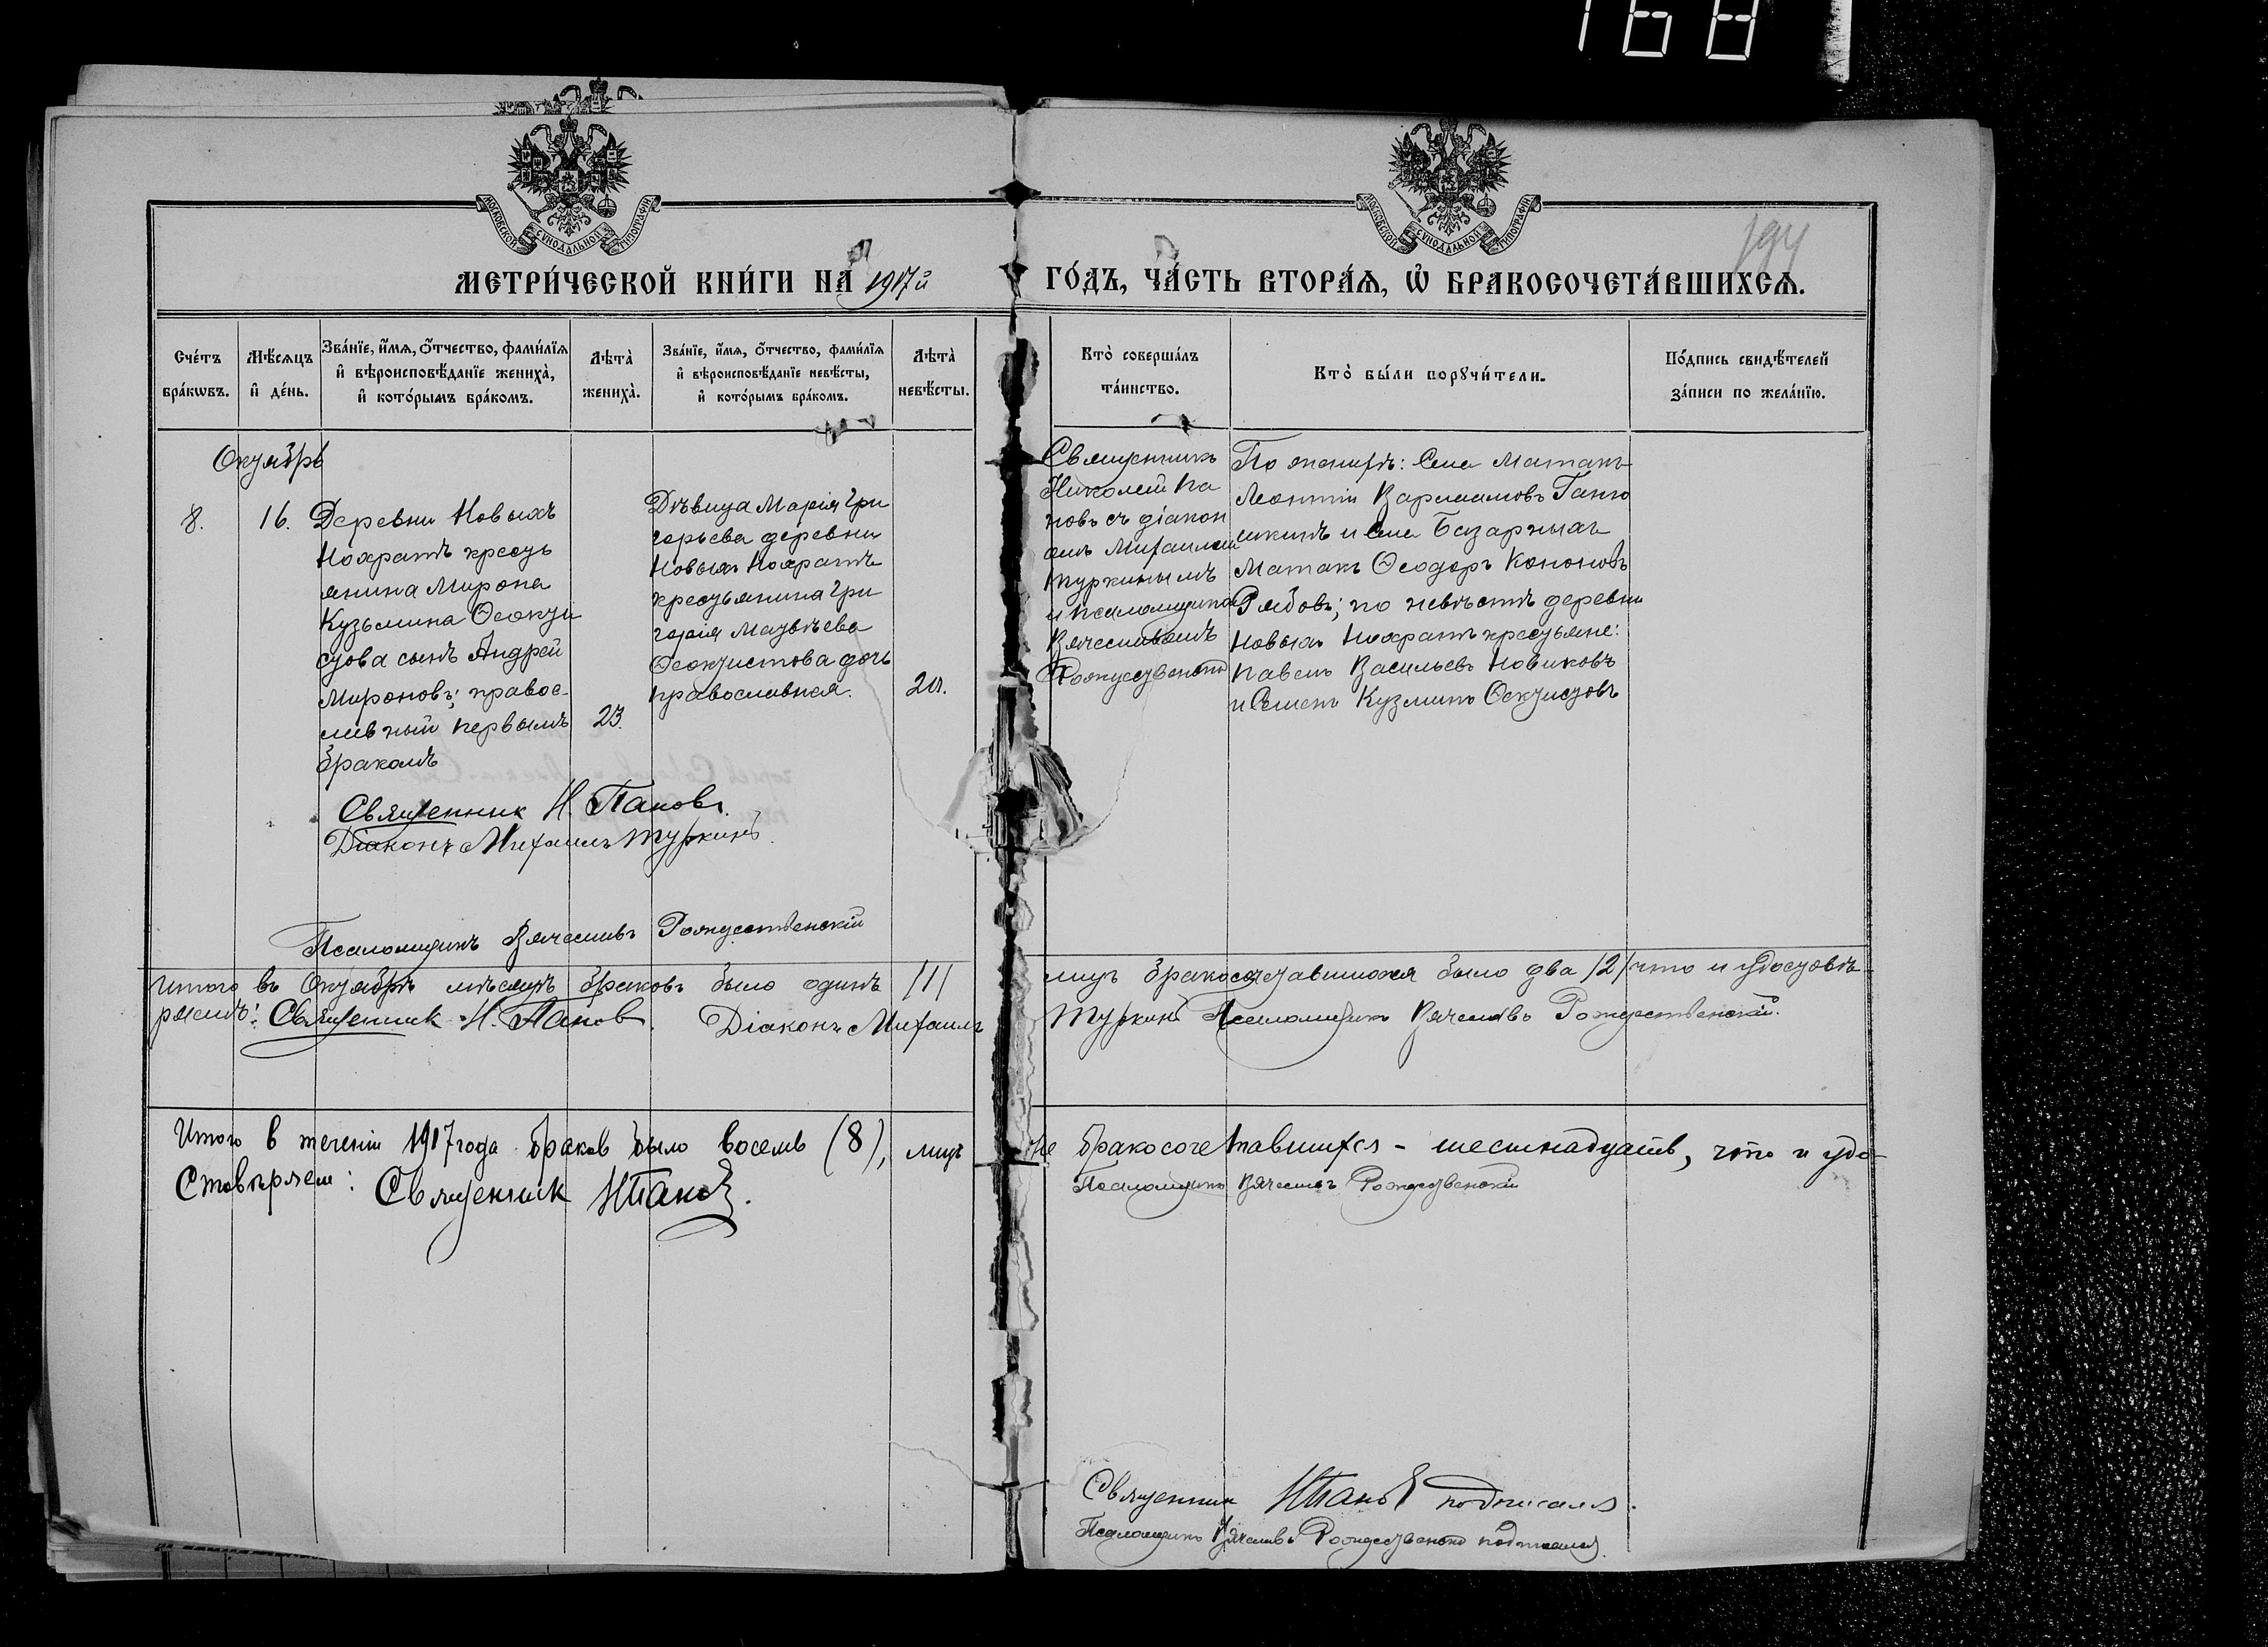 168
МОСКОВСКОЙ СѴНОДАЛЬНОЙ ТИПОГРАФІИ
МОСКОВСКОЙ СѴНОДАЛЬНОЙ ТИПОГРАФІИ
194
МЕТРИ́ЧЕСКОЙ КНИ́ГИ НА 1917й
ГО́ДЪ, ЧА́СТЬ ВТОРА́Ѧ, Ѡ҆ БРАКОСОЧЕТА́ВШИХСѦ.
Сче́тъ бра́кѡвъ.
Мѣ́сѧцъ и҆ де́нь.
Зва́нїе, и҆́мѧ, ѻ҆́тчество, фами́лїѧ и҆ вѣроисповѣ́данїе жениха̀, и҆ кото́рымъ бра́комъ.
Лѣта̀ жениха̀.
Зва́нїе, и҆́мѧ, ѻ҆́тчество, фами́лїѧ и҆ вѣроисповѣ́данїе невѣ́сты, и҆ кото́рымъ бра́комъ.
Лѣта̀ невѣ́сты.
Кто̀ соверша́лъ та́инство.
Кто̀ бы́ли порꙋчи́тели.
По́дпись свидѣ́телей за́писи по жела́нїю.
Октябрь
8.
16.
Деревни Новыхъ
Нохратъ кресть
янина Мирона
Кузьмина Ѳеокти
стова сынъ Андрей
Мироновъ; правос-
лавный первымъ
бракомъ
23.
Дѣвица Марія Гри
горьева деревни
Новыхъ Нохратъ
крестьянина Гри
горія Матвѣева
Ѳеоктистова дочь
православная.
20.
Священникъ
Николай Па
новъ съ діакон
омъ Михаиломъ
Туркинымъ
и псаломщикомъ
Вячеславомъ
По женихѣ: Села Матакъ
Леонтій Варлаамовъ
и села Базарныхъ
Матакъ Ѳеодоръ Кононовъ
Рябовъ; по невѣстѣ деревни
Новыхъ Нохратъ крестьяне:
Павелъ Васильевъ Новиковъ
и Семенъ Кузминъ
Священник Н. Панов.
Діаконъ Михаилъ Туркинъ.
Псаломщикъ Вячеславъ Рождественскій
Итого въ Октябрѣ мѣсяцѣ браковъ было одинъ /1/
лицъ бракосочетавшихся было два /2/ что и удостовѣ-
ряемъ: Священник Н. Панов. Діаконъ Михаилъ
Туркинъ Псаломщикъ Вячеславъ Рождественскій.
Итого в теченіи 1917 года браков было восемь (8), лиц
же бракосочетавшихся - шестнадцать, что и удо-
стоверяем: Священник Н Панов.
Псаломщикъ Вячеславъ Рождественскій
Священник Н Панов подписался.
Псаломщикъ Вячеславъ Рождественскій подписался.